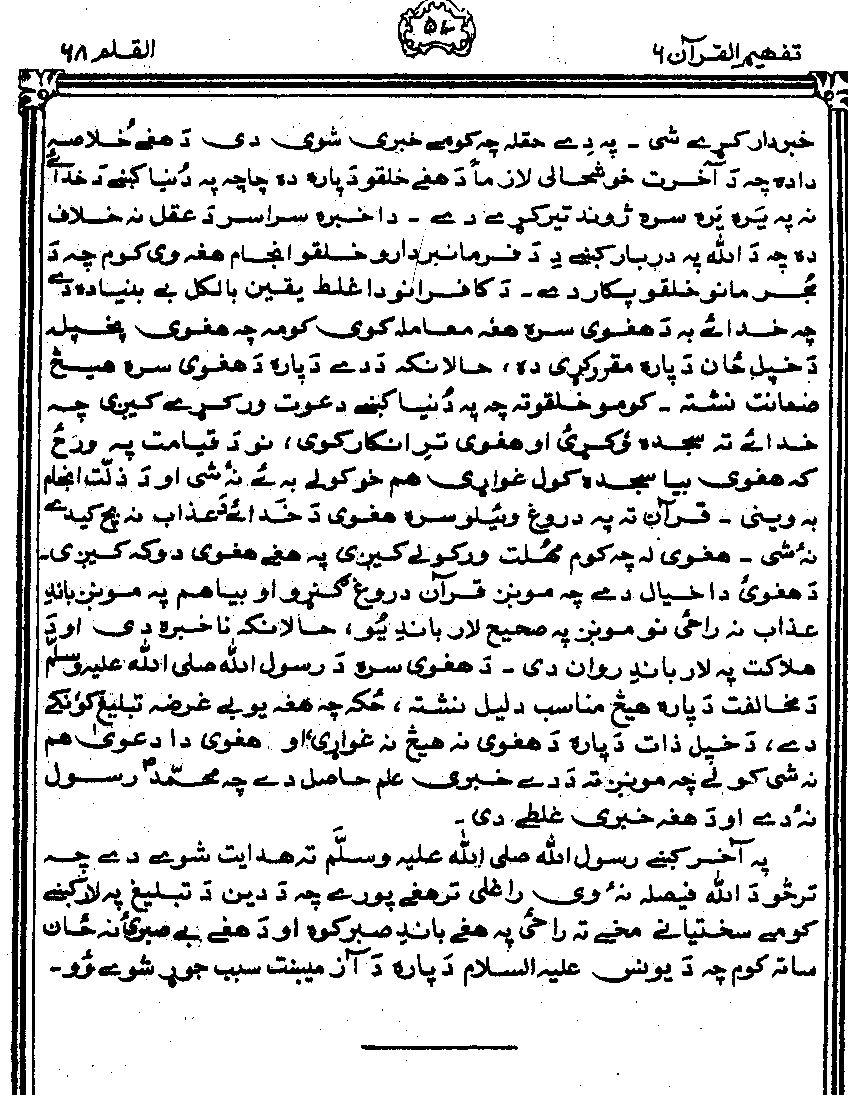 تفهيم القرآن ۶
۵۴
القلم ۶۸
خبردار کړے شی ۔ په دے حقله چه کومے خبری شوی دی دَ هغے خُلاصه
داده چه دَ آخرت خوشحالی لازماً دَ هغے خلقو دَپاره ده چاچه په دُنیا کښے دَ خدائے
نه په یَره یَره سره ژوند تیر کړے دے ۔ دا خبره سراسر دَ عقل نه خلاف
ده چه دَ الله په دربار کښے دِ دَ فرمانبردارو خلقو انجام هغه وی کوم چه دَ
مُجرمانو خلقو پکار دے ۔ دَ کافرانو دا غلط یقین بالکل بے بنیاده دے
چه خدائے به دَ هغوی سره هغه معامله کوی کومه چه هغوی پخپله
دَ خپل ځان دَپاره مقرر کړی ده ، حالانکه دَ دے دَپاره دَ هغوی سره هیڅ
ضمانت نشته ۔ کومو خلقو ته چه په دُنیا کښے دعوت ورکړے کیږی چه
خدائے ته سجده وُکړئ او هغوی ترِ انکار کوی ، نو دَ قیامت په ورځ
که هغوی بیا سجده کول غواړی هم خو کولے به ئے نهٔ شی او دَ ذلّت انجام
به وینی ۔ قرآن ته په دروغ وئیلو سره هغوی دَ خدائے دَ عذاب نه بچ کیدے
نهٔ شی ۔ هغوی له چه کوم مُهلت ورکولے کیږی په هغے هغوی دوکه کیږی ۔
دَ هغوئ دا خیال دے چه مونږ قرآن دروغ ګنړو او بیا هم په مونږ باندِ
عذاب نه راځی نو مونږ په صحیح لار باندِ یُو ، حالانکه ناخبره دی او دَ
هلاکت په لار باندِ روان دی ۔ دَ هغوی سره دَ رسول الله صلی الله علیه وسلّم
دَ مخالفت دَپاره هیڅ مناسب دلیل نشته ، ځکه چه هغه یو بے غرضه تبلیغ کوُنکے
دے ، دَ خپل ذات دَپاره دَ هغوی نه هیڅ نه غواړی او هغوی دا دعوی هم
نه شی کولے چه مونږ ته دَ دے خبری علم حاصل دے چه محمّدؐ رسول
نهٔ دے او دَ هغه خبری غلطے دی ۔
په آخر کښے رسول الله صلی الله علیه وسلّم ته هدایت شوے دے چه
ترڅو دَ الله فیصله نهٔ وی راغلی تر هغے پورے چه دَ دین دَ تبلیغ په لار کښے
کومے سختیانے مخے ته راځی په هغے باندِ صبر کوه او دَ هغے بے صبرئ نه ځان
ساته کوم چه دَ یونس علیه السلام دَپاره دَ آزمیښت سبب جوړ شوے وُو ۔